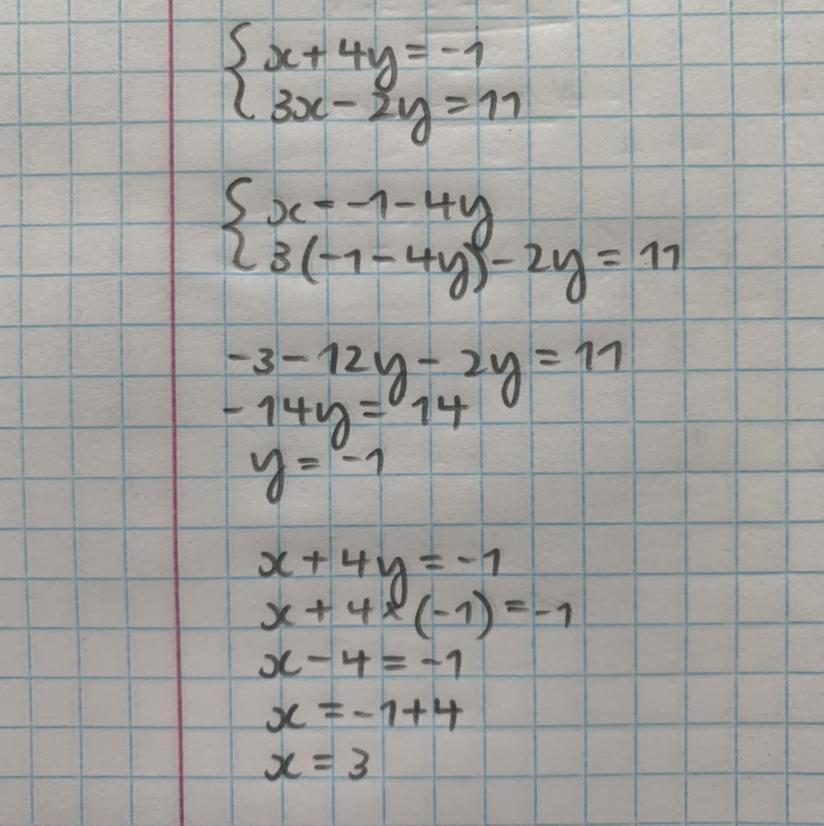 { x + 4y = -1
{ 3x - 2y = 11
{ x = -1 - 4y
{ 3(-1 - 4y) - 2y = 11
-3 - 12y - 2y = 11
-14y = 14
y = -1
x + 4y = -1
x + 4 × (-1) = -1
x - 4 = -1
x = -1 + 4
x = 3